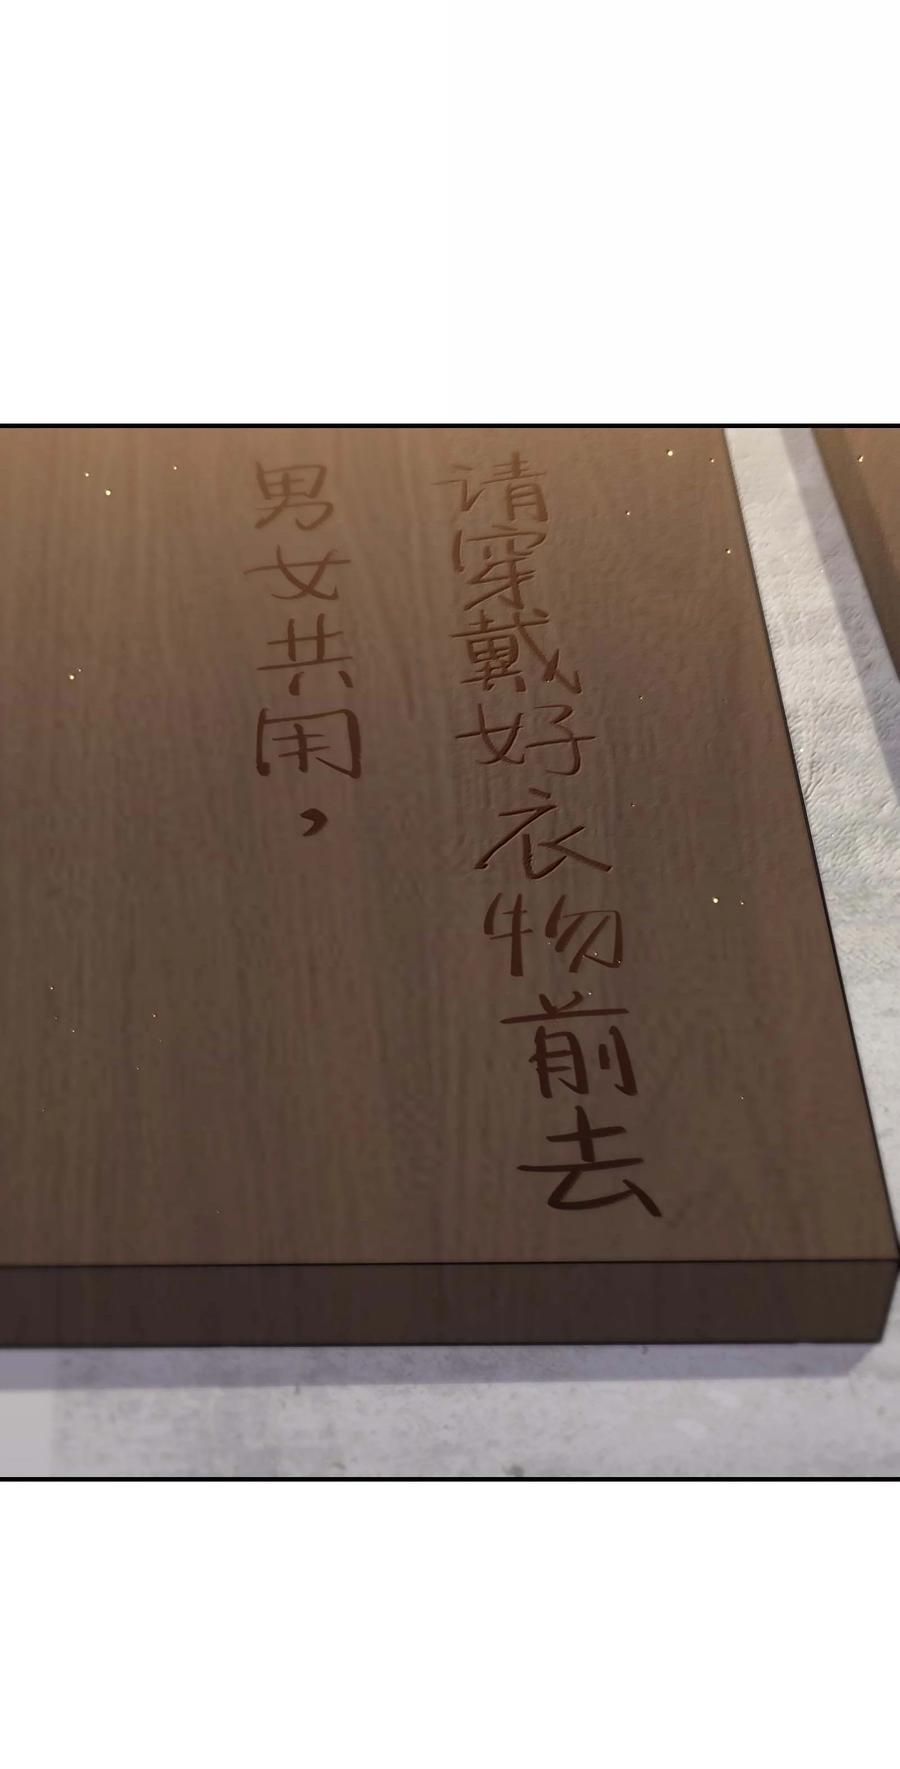 男女共用，
请穿戴好衣物前去